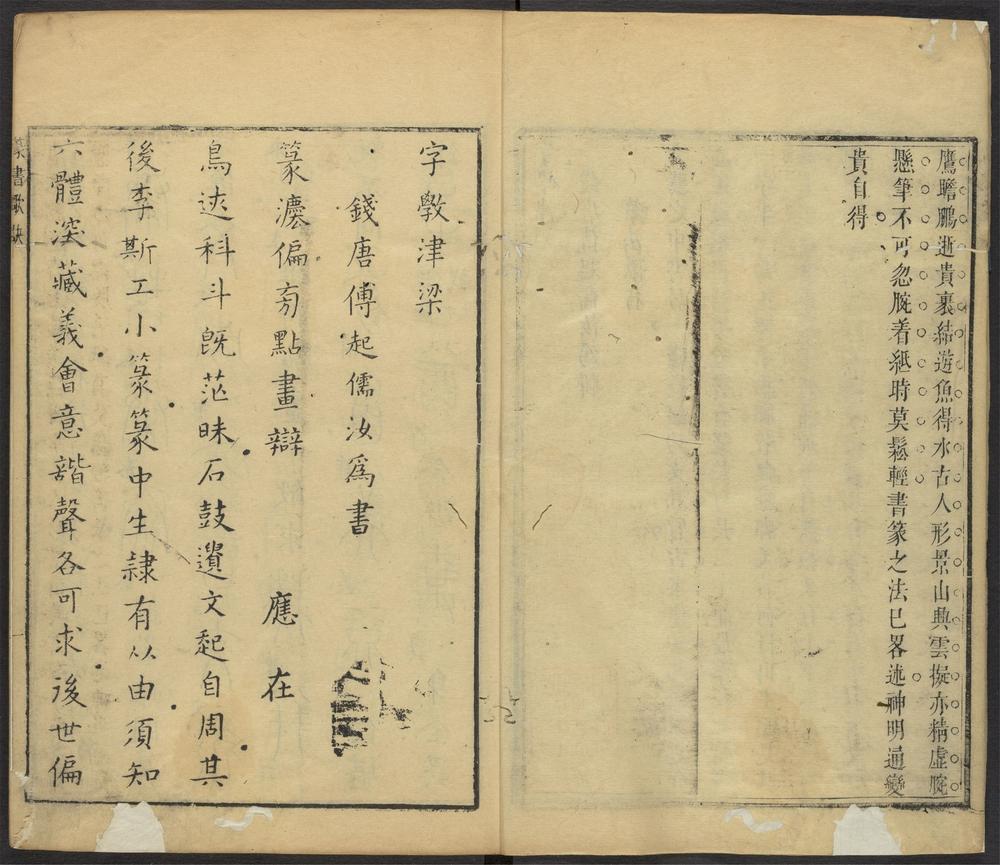 鷹瞻鵬逝貴裹結遊魚得水古人形景山與雲擬亦精虛腕
懸筆不可忽腕着紙時莫鬆輕書篆之法已畧述神明通變
貴自得
字斆津梁
錢唐傅起儒汝爲書
篆瀍偏旁點畫辯 應在
鳥迹科斗旣茫昧石鼓遺文起自周其
後李斯工小篆篆中生隷有从由須知
六體深藏義會意諧聲各可求後世偏
篆書歌訣